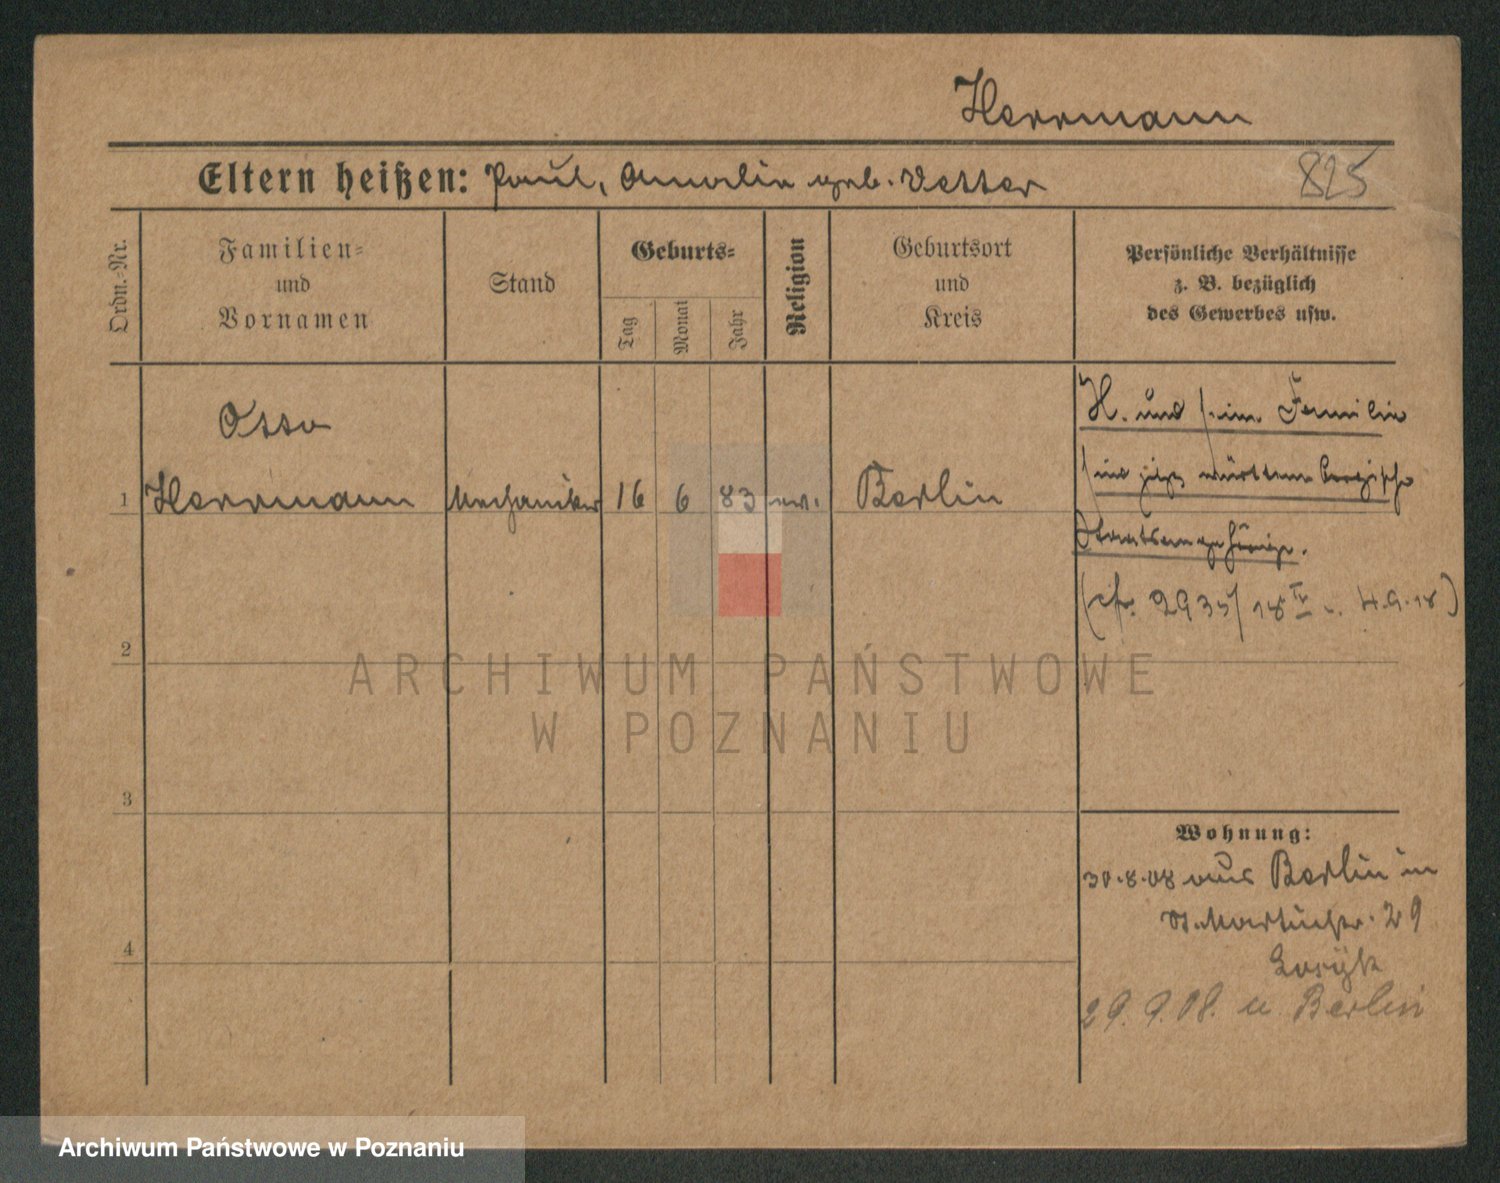 Herrmann
Eltern heißen: Paul, Amalie geb. Vetter
825
Ordn.-Nr.
Familien-
und
Vornamen
Stand
Geburts-
Tag
Monat
Jahr
Religion
Geburtsort
und
Kreis
Persönliche Verhältnisse
z. B. bezüglich
des Gewerbes usw.
Otto
1 Herrmann Mechaniker 16 6 83 ev. Berlin
H. und seine Familie
sind jetzt württembergische
Staatsangehörige.
(cf. 2935/18 IV v. 4.9.18)
2
3
4
Wohnung:
30.8.08 aus Berlin in
St. Martinstr. 29
29.9.08. n Berlin
ARCHIWUM PAŃSTWOWE
W POZNANIU
Archiwum Państwowe w Poznaniu